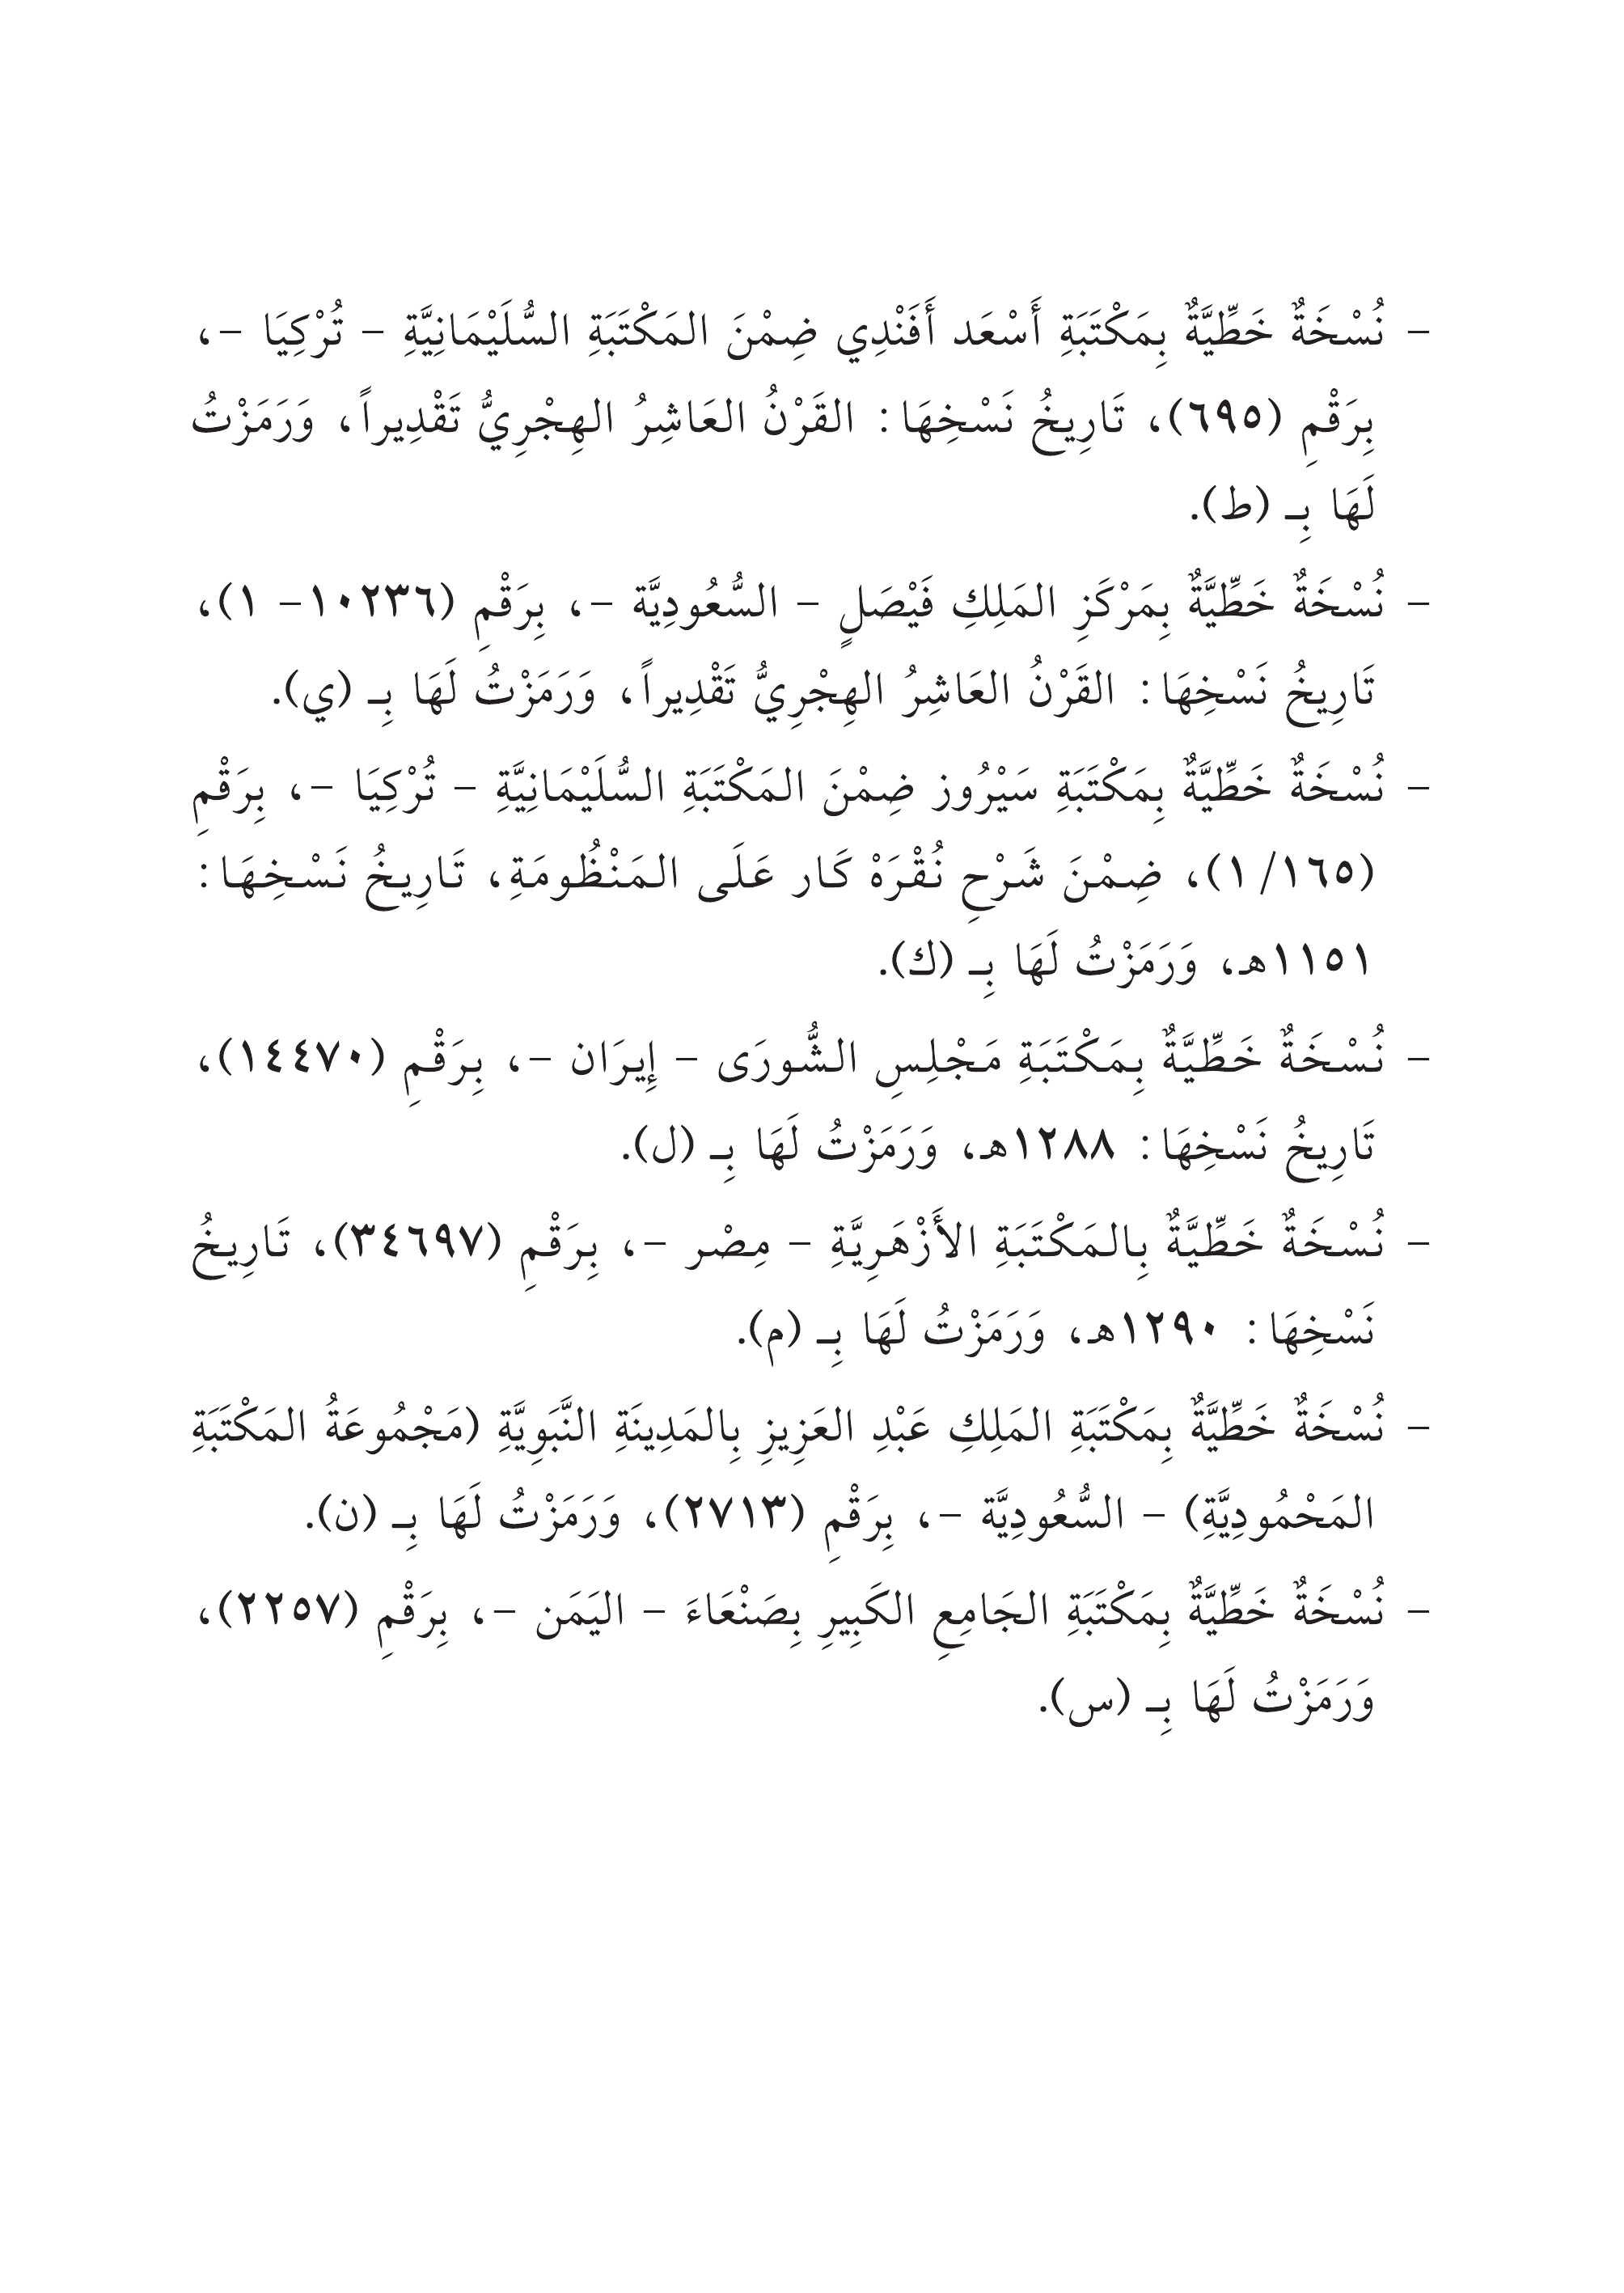 - نُسْخَةٌ خَطِّيَّةٌ بِمَكْتَبَةِ أَسْعَد أَفَنْدِي ضِمْنَ المَكْتَبَةِ السُّلَيْمَانِيَّةِ - تُرْكِيَا -،
بِرَقْمِ (٦٩٥)، تَارِيخُ نَسْخِهَا: القَرْنُ العَاشِرُ الهِجْرِيُّ تَقْدِيراً، وَرَمَزْتُ
لَهَا بِـ (ط).
- نُسْخَةٌ خَطِّيَّةٌ بِمَرْكَزِ المَلِكِ فَيْصَلٍ - السُّعُودِيَّة -، بِرَقْمِ (١٠٢٣٦- ١)،
تَارِيخُ نَسْخِهَا: القَرْنُ العَاشِرُ الهِجْرِيُّ تَقْدِيراً، وَرَمَزْتُ لَهَا بِـ (ي).
- نُسْخَةٌ خَطِّيَّةٌ بِمَكْتَبَةِ سَيْرُوز ضِمْنَ المَكْتَبَةِ السُّلَيْمَانِيَّةِ - تُرْكِيَا -، بِرَقْمِ
(١/١٦٥)، ضِمْنَ شَرْحِ نُقْرَهْ كَار عَلَى المَنْظُومَةِ، تَارِيخُ نَسْخِهَا:
١١٥١هـ، وَرَمَزْتُ لَهَا بِـ (ك).
- نُسْخَةٌ خَطِّيَّةٌ بِمَكْتَبَةِ مَجْلِسِ الشُّورَى - إِيرَان -، بِرَقْمِ (١٤٤٧٠)،
تَارِيخُ نَسْخِهَا: ١٢٨٨هـ، وَرَمَزْتُ لَهَا بِـ (ل).
- نُسْخَةٌ خَطِّيَّةٌ بِالمَكْتَبَةِ الأَزْهَرِيَّةِ - مِصْر -، بِرَقْمِ (٣٤٦٩٧)، تَارِيخُ
نَسْخِهَا: ١٢٩٠هـ، وَرَمَزْتُ لَهَا بِـ (م).
- نُسْخَةٌ خَطِّيَّةٌ بِمَكْتَبَةِ المَلِكِ عَبْدِ العَزِيزِ بِالمَدِينَةِ النَّبَوِيَّةِ (مَجْمُوعَةُ المَكْتَبَةِ
المَحْمُودِيَّةِ) - السُّعُودِيَّة -، بِرَقْمِ (٢٧١٣)، وَرَمَزْتُ لَهَا بِـ (ن).
- نُسْخَةٌ خَطِّيَّةٌ بِمَكْتَبَةِ الجَامِعِ الكَبِيرِ بِصَنْعَاءَ - اليَمَن -، بِرَقْمِ (٢٢٥٧)،
وَرَمَزْتُ لَهَا بِـ (س).